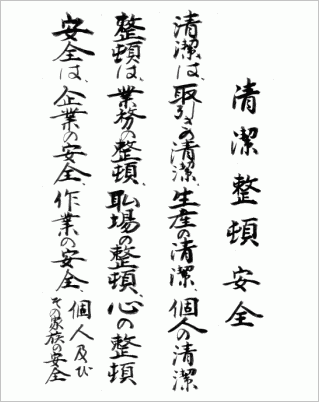 清潔 整頓 安全
清潔は、取引きの清潔、生産の清潔、個人の清潔
整頓は、業務の整頓、職場の整頓、心の整頓
安全は、企業の安全、作業の安全、個人及び
その家族の安全